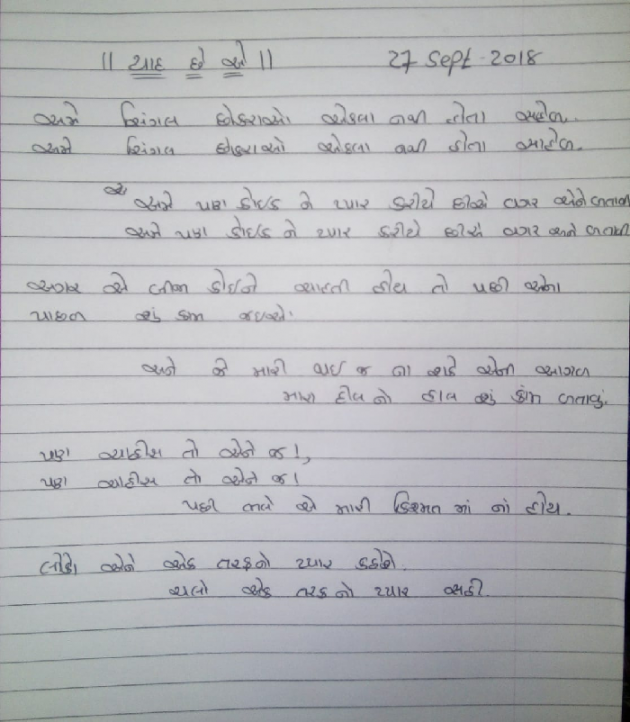 || યાદ છે એ || 27 Sept. 2018
અમે સિંગલ છોકરાઓ એકલા નથી હોતા સાહેબ.
અમે સિંગલ છોકરાઓ એકલા નથી હોતા સાહેબ.
અમે પણ કોઇક ને પ્યાર કરીયે છીએ વગર એને બતાવી
અમે પણ કોઇક ને પ્યાર કરીયે છીએ વગર એને બતાવી
અગર એ બીજા કોઇને ચાહતી હોય તો પછી એના
પાછળ શું કામ જઇએ.
અને જે મારી થઇ જ ના શકે એની આગળ
મારા દીલ નો હાલ શું કામ બતાવું.
પણ ચાહીસ તો એને જ!,
પણ ચાહીસ તો એને જ!
પછી ભલે એ મારી કિસ્મત માં નાં હોય.
લોકો એને એક તરફનો પ્યાર કહેશે.
ચાલો એક તરફ નો પ્યાર સહી.